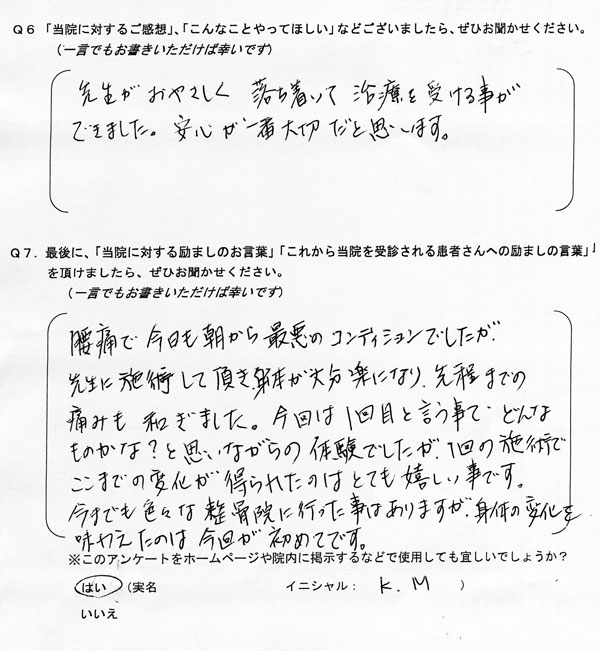 Q6 「当院に対するご感想」、「こんなことやってほしい」などございましたら、ぜひお聞かせください。
（一言でもお書きいただけば幸いです）
先生がおやさしく 落ち着いて 治療を受ける事が
できました。安心が一番大切だと思います。
Q7. 最後に、「当院に対する励ましのお言葉」「これから当院を受診される患者さんへの励ましの言葉」
を頂けましたら、ぜひお聞かせください。
（一言でもお書きいただけば幸いです）
腰痛で 今日も朝から 最悪の コンディションでしたが、
先生に施術して頂き身体が大分楽になり、先程までの
痛みも 和ぎました。今回は1回目と言う事で どんな
ものかな？と思いながらの 体験でしたが、1回の施術で
ここまでの変化が 得られたのはとても嬉しい事です。
今までも色々な 整骨院に行った事はありますが、身体の変化を
味わえたのは 今回が 初めてです。
※このアンケートをホームページや院内に掲示するなどで使用しても宜しいでしょうか？
はい （実名 イニシャル： K.M ）
いいえ